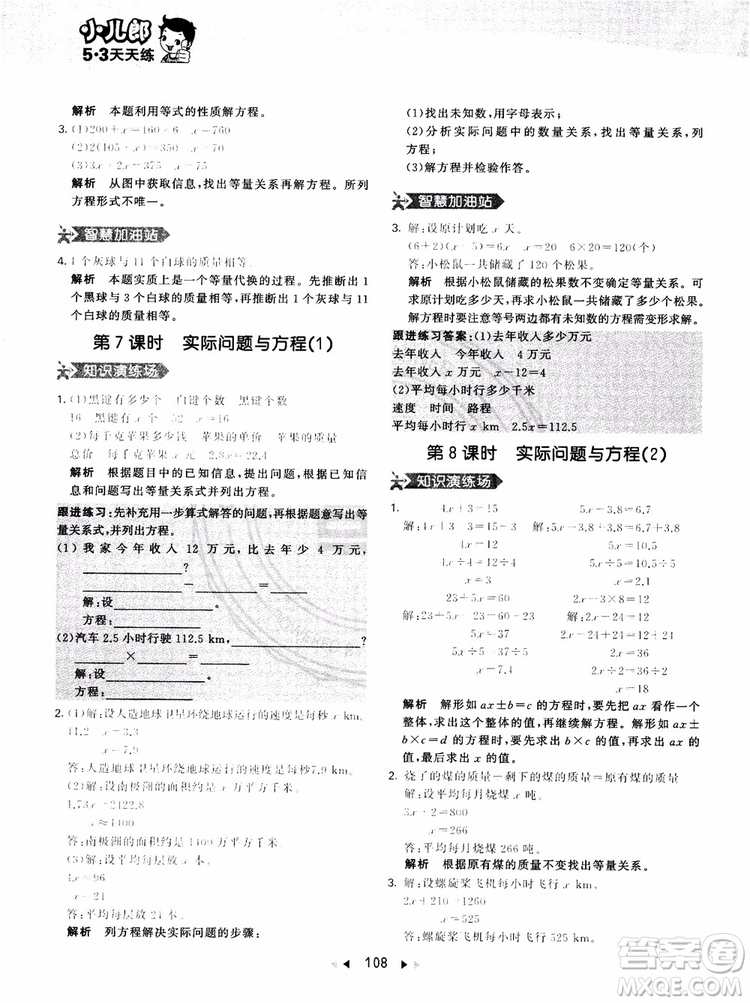 小儿郎
5·3天天练
解析 本题利用等式的性质解方程。
3. (1)200+x=160×6 x=760
(2)2(105+x)=350 x=70
(3)3x-2x=375 x=75
解析 从图中获取信息,找出等量关系再解方程。所列
方程形式不唯一。
智慧加油站
4. 1个灰球与11个白球的质量相等。
解析 本题实质上是一个等量代换的过程。先推断出1
个黑球与3个白球的质量相等,再推断出1个灰球与11
个白球的质量相等。
第7课时 实际问题与方程(1)
知识演练场
1. (1)黑键有多少个 白键个数 黑键个数
16 黑键有x个 52 x=16
(2)每千克苹果多少钱 苹果的单价 苹果的
总价 每千克苹果x元 2.8x=22.4
解析 根据题目中的已知信息,找出等量关系
并列出方程。
跟进练习:先补充用一步算式解答的问题,再根据题意写出等
量关系式,并列出方程。
(1)我家今年收入12万元,比去年少4万元,
?
=
解:设
方程:
(2)汽车2.5小时行驶112.5 km, ?
× =
解:设
方程:
2. (1)解:设人造地球卫星环绕地球运行的速度是每秒x km。
x=7.9
答:人造地球卫星环绕地球运行的速度是每秒7.9 km。
(2)解:设南极洲的面积是x万平方千米。
答:南极洲的面积约是1400万平方千米。
(3)解:设平均每层放x本。
4x=96
x=24
答:平均每层放24本。
解析 列方程解决实际问题的步骤:
(1)找出未知数,用字母表示;
(2)分析实际问题中的数量关系,找出等量关系,列
方程;
(3)解方程并检验作答。
智慧加油站
3. 解:设原计划吃x天。
(6+2)(x-5)=6x x=20 6×20=120(个)
答:小松鼠一共储藏了120个松果。
解析 根据小松鼠储藏的松果数不变确定等量关系。可
求原计划吃多少天,再求小松鼠一共储藏了多少个松果。
解方程时要注意等号两边都有未知数的方程需变形求解。
跟进练习答案:(1)去年收入多少万元
去年收入 x万元 x-4=12
(2)平均每小时行多少千米
速度 时间 路程
平均每小时行x km 2.5x=112.5
第8课时 实际问题与方程(2)
知识演练场
1. 4x+3=15 5x-3.8=6.7
解:4x+3-3=15-3 解:5x-3.8+3.8=6.7+3.8
4x=12 5x=10.5
4x÷4=12÷4 5x÷5=10.5÷5
x=3 x=2.1
解析 解形如ax±b=c的方程时,要先把ax看作一个
整体,求出这个整体的值,再继续解方程。解形如ax±
b×c=d的方程时,要先求出b×c的值,再求出ax的
值,最后求出x的值。
2. 烧了的煤的质量+剩下的煤的质量=原有煤的质量
解:设平均每月烧煤x吨。
x=266
答:平均每月烧煤266吨。
解析 根据原有煤的质量不变找出等量关系。
3. 解:设螺旋桨飞机每小时飞行x km。
2x+210=1260
x=525
答:螺旋桨飞机每小时飞行525 km。
108
答案圈
MXQE.COM